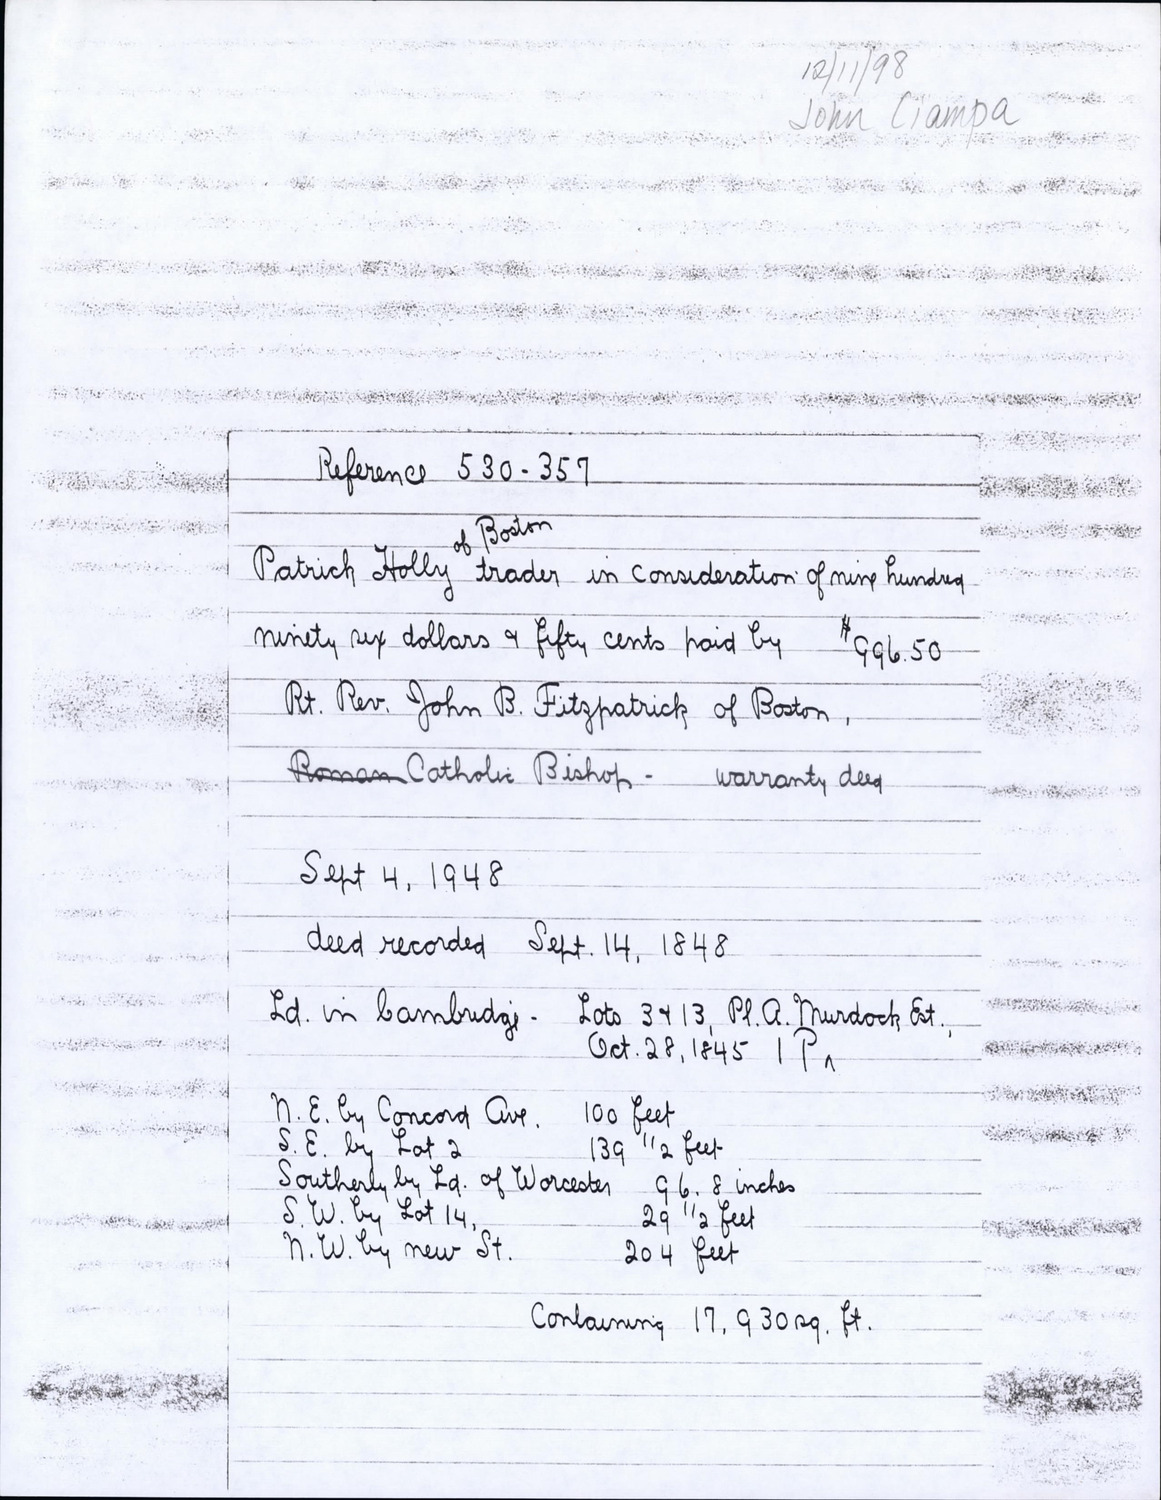 12/11/98
John Ciampa
Reference 530-357
of Boston
Patrick Holly trader in consideration of nine hundred
ninety six dollars & fifty cents paid by $996.50
Rt. Rev. John B. Fitzpatrick of Boston,
Roman Catholic Bishop - warranty deed
Sept 4, 1948
deed recorded Sept. 14, 1848
Ld. in Cambridge - Lots 3 & 13, Pl. A. Murdock Est.,
Oct. 28, 1845 1 P
N.E. by Concord Ave. 100 feet
S.E. by Lot 2 139 1/2 feet
Southerly by Ld. of Worcester 96. 8 inches
S.W. by Lot 14, 29 1/2 feet
N.W. by new St. 204 feet
Containing 17,930 sq. ft.